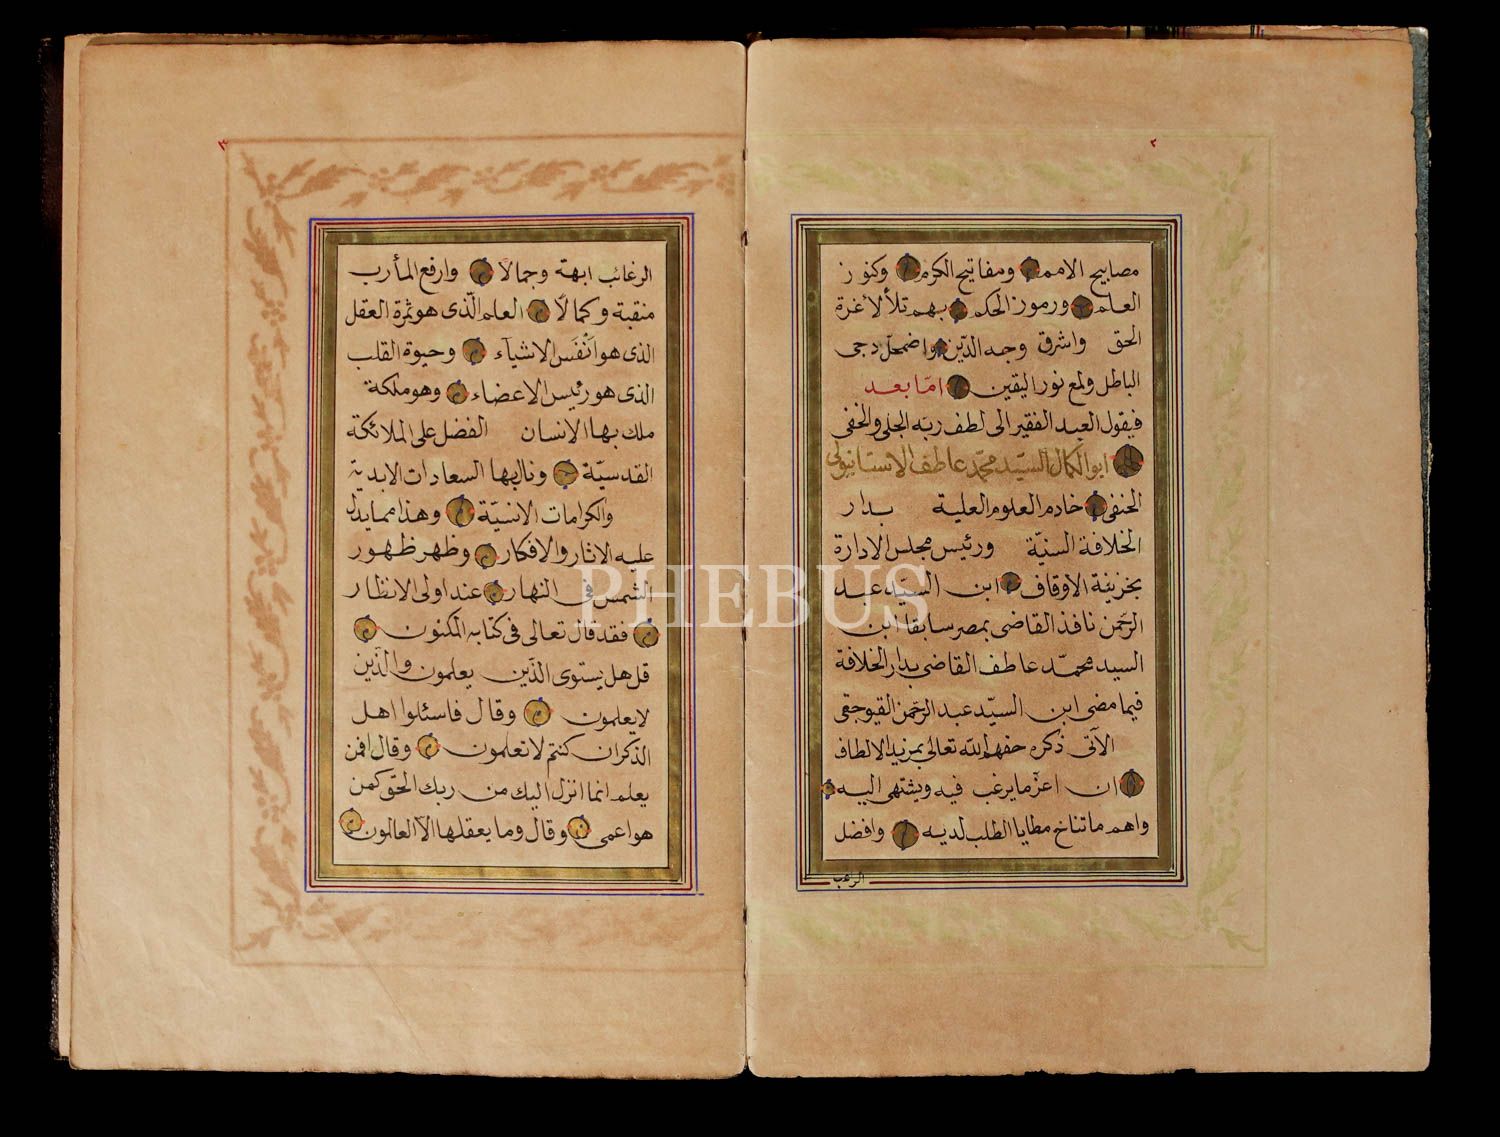 ٢
مصابيح الامم ومفاتيح الكرم وكنوز
العلم ورموز الحكم بهم تلألأ غرة
الحق واشرق وجه الدّين واضمحل دجى
الباطل ولمع نور اليقين امّا بعد
فيقول العبد الفقير الى لطف ربّه الجلى والخفى
ابو الكمال السيّد محمّد عاطف الاستانبولى
الحنفى خادم العلوم العلية بدار
الخلافة السنيّة ورئيس مجلس الادارة
بخزينة الاوقاف ابن السيّد عبد
الرّحمن نافذ القاضى بمصر سابقا ابن
السيد محمّد عاطف القاضى بدار الخلافة
فيما مضى ابن السيّد عبد الرّحمن القيوجقى
الآتى ذكره حفهم الله تعالى بمزيد الالطاف
ان اعزّ ما يرغب فيه ويشتهى اليه
واهم ما تناخ مطايا الطلب لديه وافضل
الرغائب
٣
الرغائب ابهة وجمالا وارفع المأرب
منقبة وكمالا العلم الّذى هو ثمرة العقل
الذى هو انْفَس الاشيآء وحيوة القلب
الذى هو رئيس الاعضاء وهو ملكة
ملك بها الانسان الفضل على الملائكة
القدسيّة ونال بها السعادات الابدية
والكرامات الانسيّة وهذا مما يدل
عليه الاثار والافكار وظهر ظهور
الشمس فى النهار عند اولى الانظار
فقد قال تعالى فى كتابه المكنون
قل هل يستوى الذّين يعلمون والذّين
لا يعلمون وقال فاسئلوا اهل
الذكر ان كنتم لا تعلمون وقال افمن
يعلم انما انزل اليك من ربك الحقّ كمن
هو اعمى وقال وما يعقلها الّا العالمون
PHEBUS